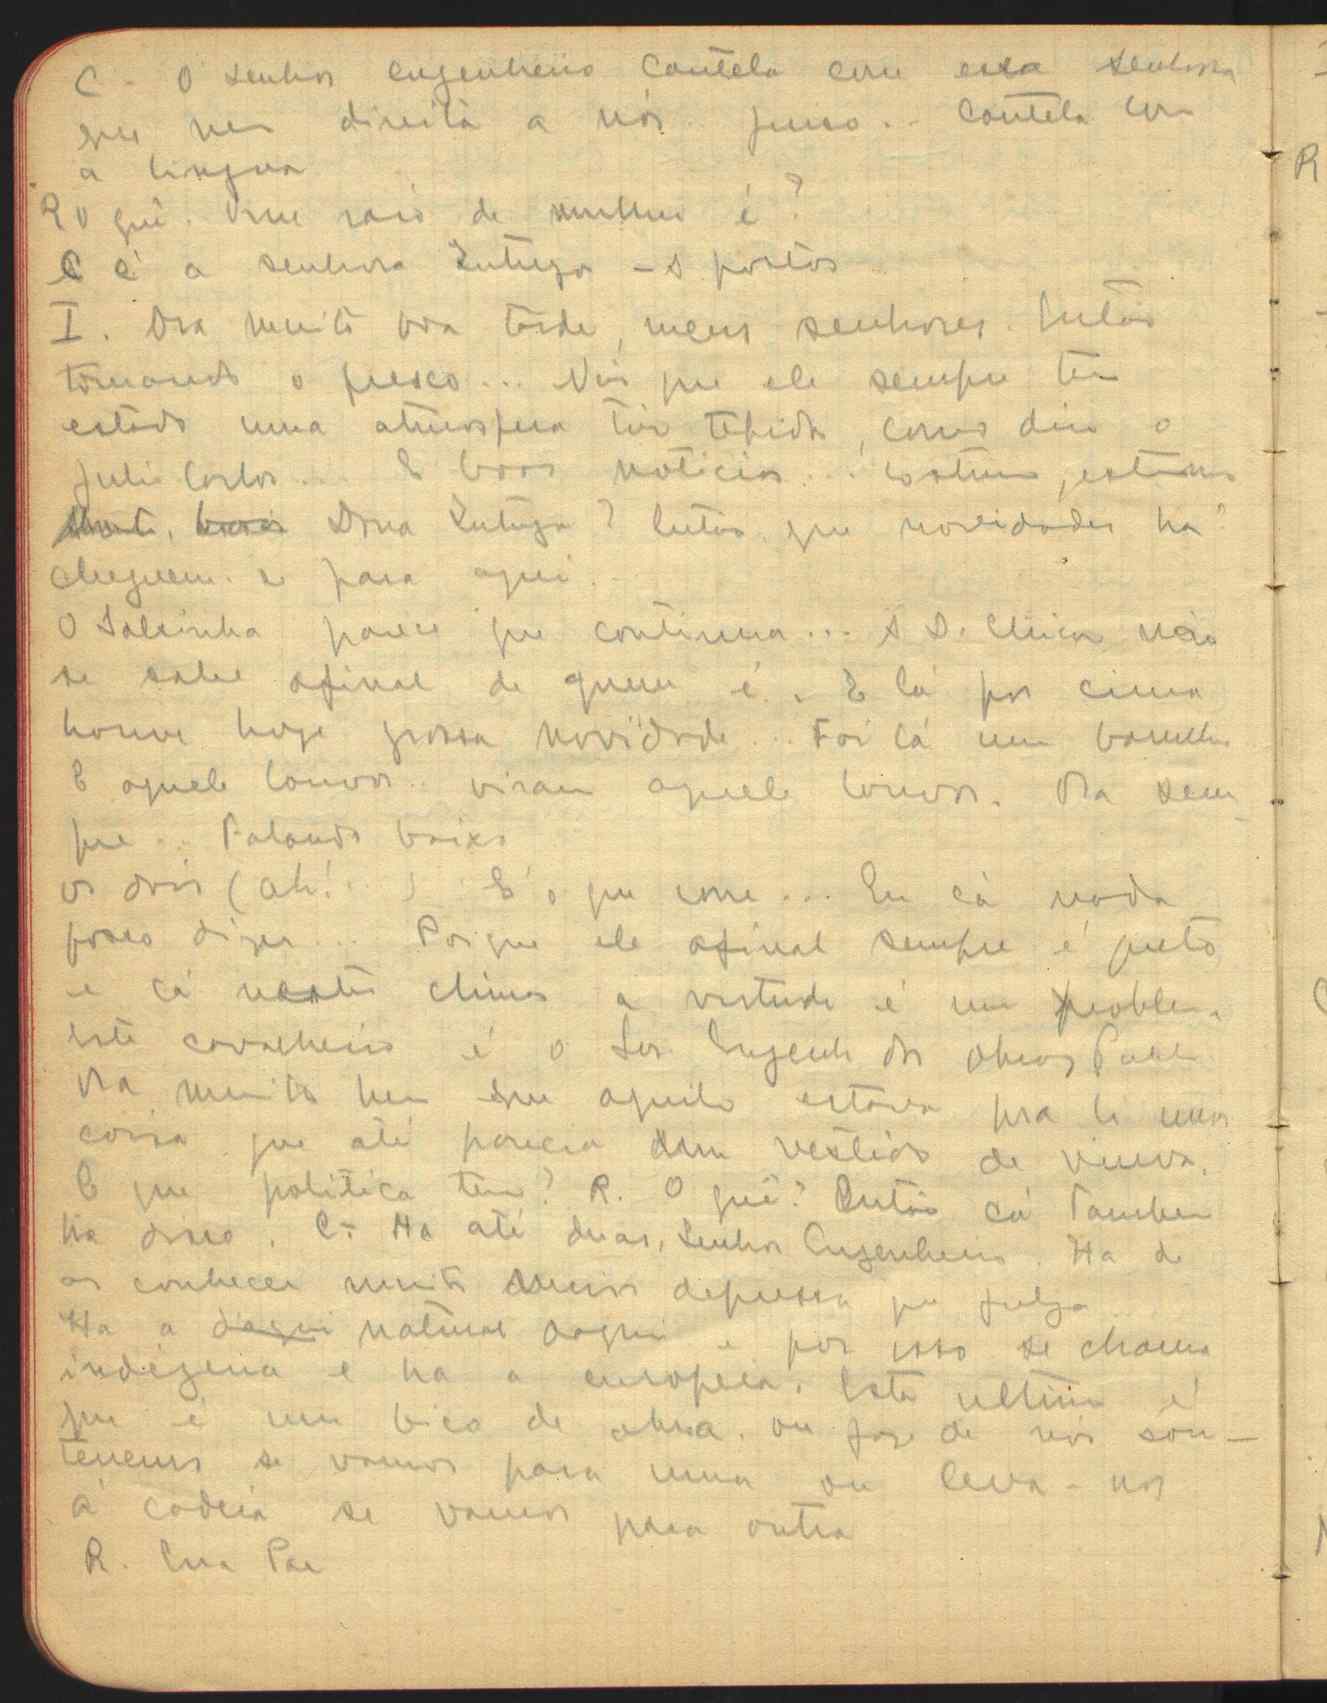 C - O Senhor engenheiro Cautela com essa senhora
que vem direita a nós. Juizo.. Cautela com
a lingua
R O quê. Que raio de mulher é?
C É a senhora Intriga - s
I. Ora muito boa tarde, meus senhores. Então
tomando o fresco... Nós que ele sempre tem
estado uma atmosfera tão tepida, como diz o
Julio Carlos... E boas noticias...
Dona Intriga? Então que novidades ha?
cheguem-se para aqui.
O Salsinha parece que continua... A D. Chica não
se sabe afinal de quem é. E lá por cima
houve hoje grossa novidade... Foi lá um barulho
E aquele louvor.. viram aquele louvor. Ora sem-
pre... Falando baixo
os dois (Ah!...) É o que corre... Eu cá nada
posso dizer... Porque ele afinal sempre é preto
e cá nestes climas a virtude é um problema
Este cavalheiro é o Sr. Engenh das Obras Publ
Ora muito bem que aquilo estava pra li uma
coisa que até parecia um vestido de viuva.
E que politica tem? R. O quê? Então cá tambem
ha disso. C. Ha até duas, Senhor Engenheiro. Ha de
as conhecer muito mais depressa que julga
Ha a daqui natural daqui e por isso se chama
indigena e ha a europeia. Esta ultima é
que é um bico de obra. ou foge de nós
se vamos para uma ou leva-nos
á cadeia se vamos para outra
R.